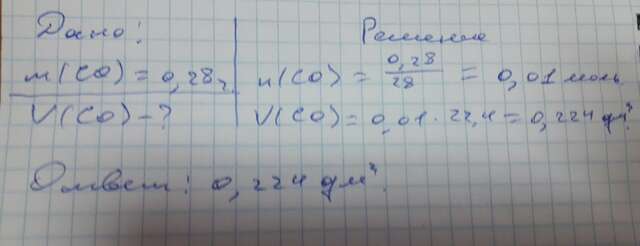 Дано:
m(CO) = 0,28г
V(CO) - ?
Решение
n(CO) = 0,28/28 = 0,01 моль
V(CO) = 0,01 · 22,4 = 0,224 дм³
Ответ: 0,224 дм³.